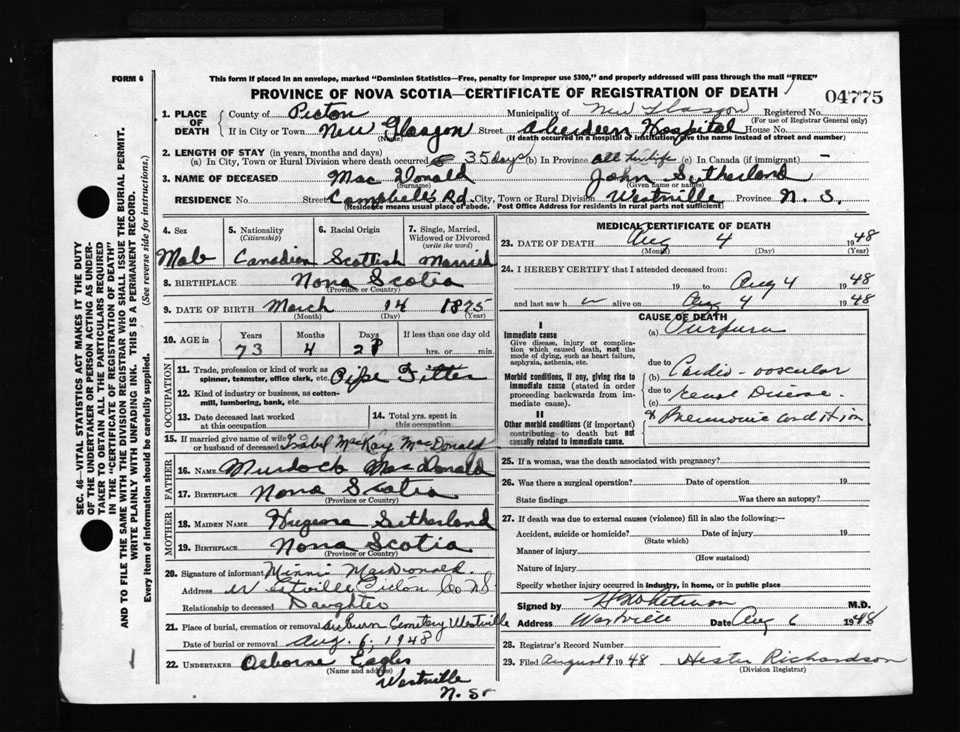 FORM 6
This form if placed in an envelope, marked "Dominion Statistics—Free, penalty for improper use $300," and properly addressed will pass through the mail "FREE"
PROVINCE OF NOVA SCOTIA—CERTIFICATE OF REGISTRATION OF DEATH
04775
1. PLACE OF DEATH
County of Picton Municipality of New Glasgow Registered No.
(For use of Registrar General only)
If in City or Town New Glasgow Street Aberdeen Hospital House No.
(Name) (If death occurred in a hospital or institution give the name instead of street and number)
2. LENGTH OF STAY (in years, months and days)
(a) In City, Town or Rural Division where death occurred 35 days (b) In Province all his life (c) In Canada (if immigrant) —
3. NAME OF DECEASED Mac Donald John Sutherland
(Surname) (Given name or names)
RESIDENCE No. Street Campbell's Rd. City, Town or Rural Division Westville Province N. S.
(Residence means usual place of abode. Post Office Address for residents in rural parts not sufficient)
4. Sex
Male
5. Nationality
(Citizenship)
Canadian
6. Racial Origin
Scottish
7. Single, Married, Widowed or Divorced
(write the word)
Married
8. BIRTHPLACE Nova Scotia
(Province or Country)
9. DATE OF BIRTH March 14 1875
(Month) (Day) (Year)
10. AGE in
Years Months Days If less than one day old
73 4 21 hrs. or min.
OCCUPATION
11. Trade, profession or kind of work as spinner, teamster, office clerk, etc. Pipe Fitter
12. Kind of industry or business, as cotton-mill, lumbering, bank, etc.
13. Date deceased last worked at this occupation
14. Total yrs. spent in this occupation
15. If married give name of wife or husband of deceased Isabel MacKay MacDonald
FATHER
16. NAME Murdock MacDonald
17. BIRTHPLACE Nova Scotia
(Province or Country)
MOTHER
18. MAIDEN NAME Sutherland
19. BIRTHPLACE Nova Scotia
(Province or Country)
20. Signature of informant Minni MacDonald
Address Westville Picton Co N.S
Relationship to deceased Daughter
21. Place of burial, cremation or removal Auburn Cemetery Westville
Date of burial or removal Aug. 6, 1948
22. UNDERTAKER Osborne Eagles
(Name and address)
Westville
N. S.
MEDICAL CERTIFICATE OF DEATH
23. DATE OF DEATH Aug 4 1948
(Month) (Day) (Year)
24. I HEREBY CERTIFY that I attended deceased from:
19 to Aug 4 1948
and last saw h alive on Aug 4 1948
CAUSE OF DEATH
I
Immediate cause
Give disease, injury or complication which caused death, not the mode of dying, such as heart failure, asphyxia, asthenia, etc.
Morbid conditions, if any, giving rise to immediate cause (stated in order proceeding backwards from immediate cause).
II
Other morbid conditions (if important) contributing to death but not causally related to immediate cause.
(a) Purpura
due to
(b) Cardio-vascular
due to
(c) renal Disease
& Pneumonic condition
25. If a woman, was the death associated with pregnancy?
26. Was there a surgical operation? Date of operation 19
State findings Was there an autopsy?
27. If death was due to external causes (violence) fill in also the following:—
Accident, suicide or homicide? Date of injury 19
(State which)
Manner of injury
(How sustained)
Nature of injury
Specify whether injury occurred in industry, in home, or in public place
Signed by M.D.
Address Westville Date Aug 6 1948
28. Registrar's Record Number
29. Filed August 9 1948 Hester Richardson
(Division Registrar)
SEC. 46—VITAL STATISTICS ACT MAKES IT THE DUTY
OF THE UNDERTAKER OR PERSON ACTING AS UNDERTAKER TO OBTAIN ALL THE PARTICULARS REQUIRED
IN THE "CERTIFICATE OF REGISTRATION OF DEATH"
AND TO FILE THE SAME WITH THE DIVISION REGISTRAR WHO SHALL ISSUE THE BURIAL PERMIT.
WRITE PLAINLY WITH UNFADING INK. THIS IS A PERMANENT RECORD.
Every item of information should be carefully supplied. (See reverse side for instructions.)